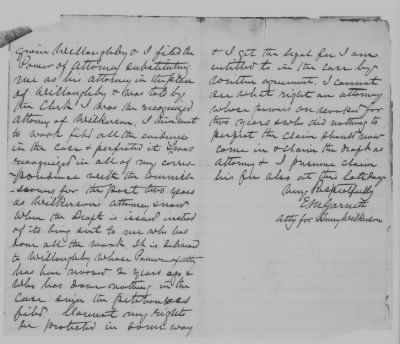 given Willoughby & I filed the
Power of Attorney substituting
me as his attorney in the place
of Willoughby & was told by
the Clerk I was the recognized
Attorney of Wilkerson, I then went
to work filed all the evidence
in the case & perfected it & was
recognized in all of my corres-
pondence with the Commis-
sioners for the past two years
as Wilkersons attorney, now
when the Draft is issued instead
of its being sent to me who has
done all the work. It is delivered
to Willoughby whose Power of atty
has been revoked 2 years ago &
who has done nothing in the
case since the petition was
filed. Cannot my rights
be protected in some way
& I get the legal fee I am
entitled to in the case by
written agreement. I cannot
see what right an attorney
whose powers are revoked for
two years & who did nothing to
perfect the claim should now
come in & claim the draft as
attorney & I presume claim
his fee also at this late day
Very respectfully
E. M. Garnett
Atty for Henry Wilkerson